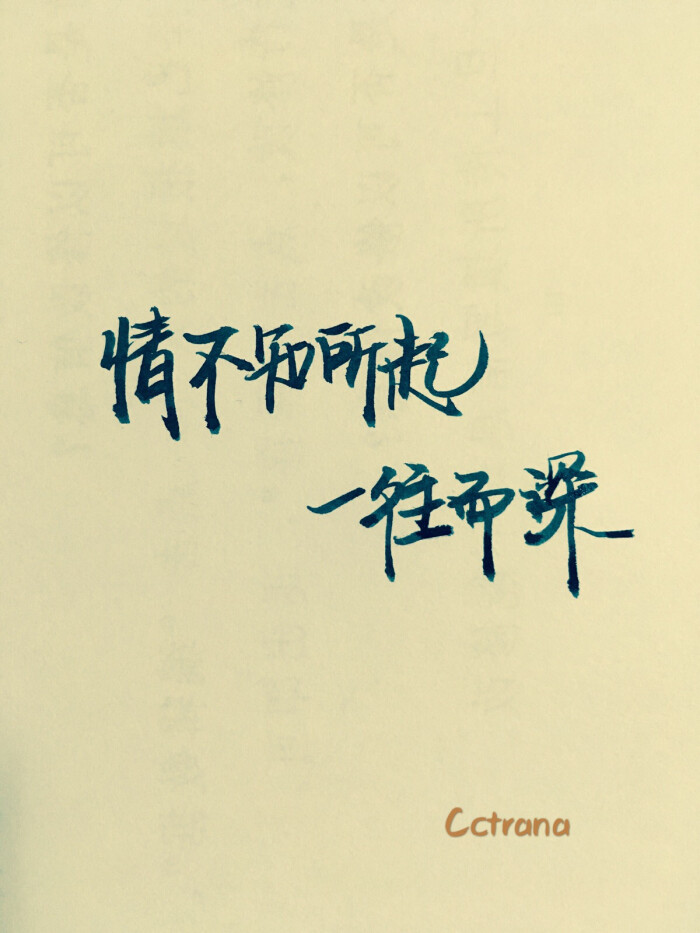 情不知所起
一往而深
Cctrana